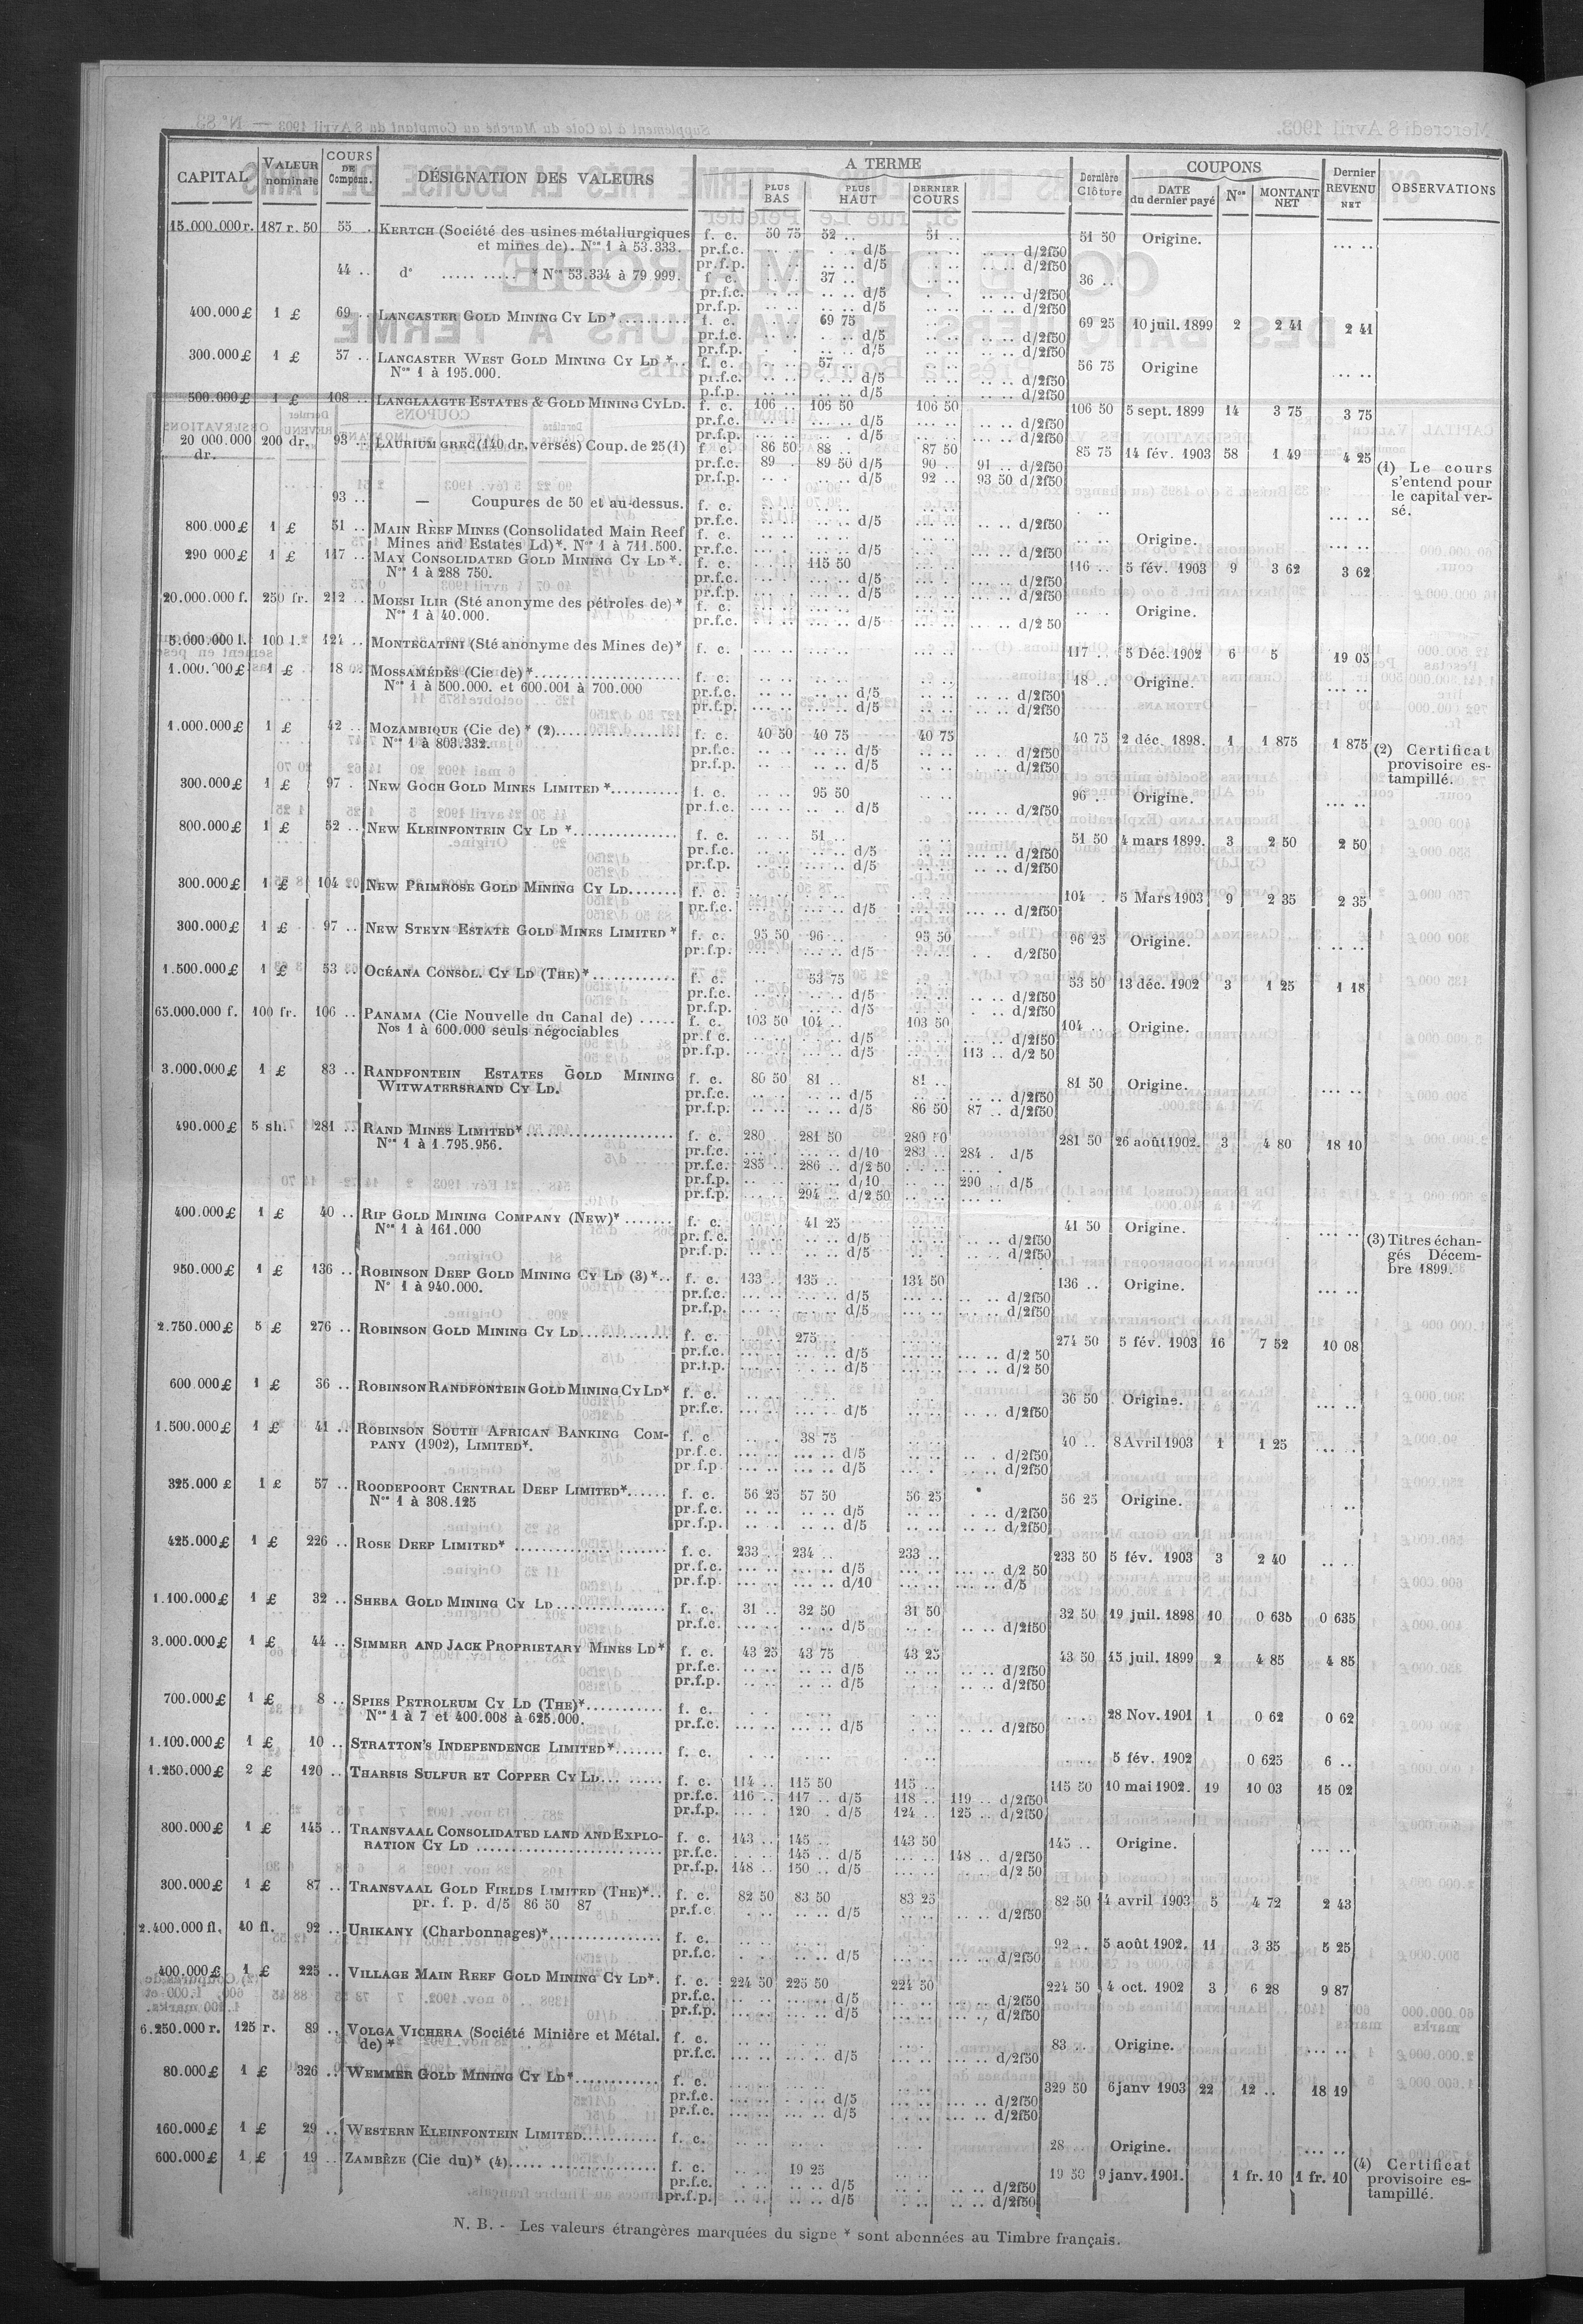 CAPITAL VALEUR nominale COURS DE Compens. DÉSIGNATION DES VALEURS A TERME PLUS BAS PLUS HAUT DERNIER COURS Dernière Clôture COUPONS DATE du dernier payé Nos MONTANT NET Dernier REVENU NET OBSERVATIONS
15.000.000 r. 187 r. 50 55 .. KERTCH (Société des usines métallurgiques f. c. 50 75 52 .. 51 .. 51 50 Origine. .... ..
et mines de). Nos 1 à 53.333. pr.f.c. d/5 d/2f50
pr.f.p. d/5 d/2f50
44 .. d° ..... ..... * Nos 53.334 à 79 999. f c. 37 .. 36 ..
pr.f.c. d/5 d/2f50
pr.f.p. d/5 d/2f50
400.000 £ 1 £ 69 .. LANCASTER GOLD MINING CY LD * f. c. 69 75 69 25 10 juil. 1899 2 2 41 2 41
pr.f.c. d/5 d/2f50
pr.f.p. d/5 d/2f50
300.000 £ 1 £ 57 .. LANCASTER WEST GOLD MINING CY LD *.. f. c. 57 .. 56 75 Origine
Nos 1 à 195.000. pr.f.c. d/5 d/2f50
p.f.p. d/5 d/2f50
500.000 £ 1 £ 108 .. LANGLAAGTE ESTATES & GOLD MINING CY LD. f. c. 106 .. 106 50 106 50 106 50 5 sept. 1899 14 3 75 3 75
pr.f.c. d/5 d/2f50
pr.f.p. d/5 d/2f50
20 000.000 dr. 200 dr. 93 .. LAURIUM GREC (140 dr. versés) Coup. de 25 (1) f c. 86 50 88 .. 87 50 85 75 14 fév. 1903 58 1 49 4 25
pr.f.c. 89 . 89 50 d/5 90 .. 91 .. d/2f50 (1) Le cours
pr.f.p. d/5 92 .. 93 50 d/2f50 s'entend pour
le capital ver-
93 .. — Coupures de 50 et au-dessus. f. c. sé.
pr.f.c. d/5 d/2f50
800.000 £ 1 £ 51 .. MAIN REEF MINES (Consolidated Main Reef f. c. Origine.
Mines and Estates Ld) *. Nos 1 à 711.500. pr.f.c. d/5 d/2f50
290 000 £ 1 £ 117 .. MAY CONSOLIDATED GOLD MINING CY LD *. f. c. 115 50 116 .. 5 fév. 1903 9 3 62 3 62
Nos 1 à 288 750. pr.f.c. d/5 d/2f50
pr.f.p. d/5 d/2f50
20.000.000 f. 250 fr. 212 .. MOESI ILIR (Sté anonyme des pétroles de) * f. c. Origine.
Nos 1 à 40.000. pr.f.c. d/5 d/2 50
5.000.000 l. 100 l. 124 .. MONTECATINI (Sté anonyme des Mines de) * f. c. 117 .. 5 Déc. 1902 6 5 19 05
1.000.000 £ 1 £ 18 .. MOSSAMÉDÈS (Cie de) * f. c. 18 .. Origine.
Nos 1 à 500.000. et 600.001 à 700.000 pr.f.c. d/5 d/2f50
pr.f.p. d/5 d/2f50
1.000.000 £ 1 £ 42 .. MOZAMBIQUE (Cie de) * (2) f. c. 40 50 40 75 40 75 40 75 2 déc. 1898. 1 1 875 1 875 (2) Certificat
Nos 1 à 803.332. pr.f.c. d/5 d/2f50 provisoire es-
pr.f.p. d/5 d/2f50 tampillé.
300.000 £ 1 £ 97 . NEW GOCH GOLD MINES LIMITED * f. c. 95 50 96 .. Origine.
pr.f.c. d/5 d/2f50
800.000 £ 1 £ 52 .. NEW KLEINFONTEIN CY LD * f. c. 51 .. 51 50 4 mars 1899. 3 2 50 2 50
pr.f.c. d/5 d/2f50
pr.f.p. d/5 d/2f50
300.000 £ 1 £ 104 .. NEW PRIMROSE GOLD MINING CY LD f. c. 104 . 5 Mars 1903 9 2 35 2 35
pr.f.c. d/5 d/2f50
300.000 £ 1 £ 97 .. NEW STEYN ESTATE GOLD MINES LIMITED * f. c. 95 50 96 .. 95 50 96 25 Origine.
pr.f.p. d/5 d/2f50
1.500.000 £ 1 £ 53 .. OCÉANA CONSOL. CY LD (THE) * f. c. 53 75 53 50 13 déc. 1902 3 1 25 1 18
pr.f.c. d/5 d/2f50
pr.f.p. d/5 d/2f50
65.000.000 f. 100 fr. 106 .. PANAMA (Cie Nouvelle du Canal de) f. c. 103 50 104 .. 103 50 104 .. Origine.
Nos 1 à 600.000 seuls négociables pr.f c. d/5 d/2f50
pr.f.p. d/5 113 .. d/2 50
3.000.000 £ 1 £ 83 .. RANDFONTEIN ESTATES GOLD MINING f. c. 80 50 81 .. 81 .. 81 50 Origine.
WITWATERSRAND CY LD. pr.f.c. d/5 d/2f50
pr.f.p. d/5 86 50 87 .. d/2f50
490.000 £ 5 sh. 281 .. RAND MINES LIMITED * f. c. 280 281 50 280 50 281 50 26 août 1902. 3 4 80 18 10
Nos 1 à 1.795.956. pr.f.c. d/10 283 .. 284 . d/5
pr.f.c. 285 .. 286 .. d/2 50
pr.f.p. d/10 290 d/5
pr.f.p. 294 .. d/2 50
400.000 £ 1 £ 40 .. RIP GOLD MINING COMPANY (NEW) * f. c. 41 25 41 50 Origine.
Nos 1 à 161.000 pr. f. c. d/5 d/2f50 (3) Titres échan-
pr.f.p. d/5 d/2f50 gés Décem-
bre 1899.
950.000 £ 1 £ 136 .. ROBINSON DEEP GOLD MINING CY LD (3) *.. f. c. 133 .. 135 .. 134 50 136 .. Origine.
N° 1 à 940.000. pr.f.c. d/5 d/2f50
pr.f.p. d/5 d/2f50
2.750.000 £ 5 £ 276 .. ROBINSON GOLD MINING CY LD f. c. 275 274 50 5 fév. 1903 16 7 52 10 08
pr.f.c. d/5 d/2 50
pr.f.p. d/5 d/2 50
600.000 £ 1 £ 36 .. ROBINSON RANDFONTEIN GOLD MINING CY LD * f. c. 36 50 Origine.
pr.f.c. d/5 d/2f50
1.500.000 £ 1 £ 41 .. ROBINSON SOUTH AFRICAN BANKING COM- f. c 38 75 40 .. 8 Avril 1903 1 1 25
PANY (1902), LIMITED *. pr.f.c. d/5 d/2f50
pr f.p d/5 d/2f50
325.000 £ 1 £ 57 .. ROODEPOORT CENTRAL DEEP LIMITED * f. c. 56 25 57 50 56 25 56 25 Origine.
Nos 1 à 308.125 pr.f.c. d/5 d/2f50
pr.f.p. d/5 d/2f50
425.000 £ 1 £ 226 .. ROSE DEEP LIMITED * f. c. 233 .. 234 .. 233 .. 233 50 5 fév. 1903 3 2 40
pr.f.c. d/5 d/2 50
pr.f.p d/10 d/5
1.100.000 £ 1 £ 32 .. SHEBA GOLD MINING CY LD f. c. 31 .. 32 50 31 50 32 50 19 juil. 1898 10 0 635 0 635
pr.f.c. d/5 d/2f50
3.000.000 £ 1 £ 44 .. SIMMER AND JACK PROPRIETARY MINES LD * f. c. 43 25 43 75 43 25 43 50 15 juil. 1899 2 4 85 4 85
pr.f.c. d/5 d/2f50
pr.f.p. d/5 d/2f50
700.000 £ 1 £ 8 .. SPIES PETROLEUM CY LD (THE) * f. c. 28 Nov. 1901 1 0 62 0 62
Nos 1 à 7 et 400.008 à 625.000. pr.f.c. d/5 d/2f50
1.100.000 £ 1 £ 10 .. STRATTON'S INDEPENDENCE LIMITED * f. c. 5 fév. 1902 0 625 6 ..
1.250.000 £ 2 £ 120 .. THARSIS SULFUR ET COPPER CY LD f. c. 114 .. 115 50 115 .. 115 50 10 mai 1902. 19 10 03 15 02
pr.f.c. 116 .. 117 .. d/5 118 .. 119 .. d/2f50
pr.f.p. 120 . d/5 124 .. 125 .. d/2f50
800.000 £ 1 £ 145 .. TRANSVAAL CONSOLIDATED LAND AND EXPLO- f. c. 143 .. 145 .. 143 50 145 .. Origine.
RATION CY LD pr.f.c. 145 .. d/5 148 .. d/2f50
pr.f.p. 148 .. 150 .. d/5 d/2 50
300.000 £ 1 £ 87 .. TRANSVAAL GOLD FIELDS LIMITED (THE) *.. f. c. 82 50 83 50 83 25 82 50 4 avril 1903 5 4 72 2 43
pr. f. p. d/5 86 50 87 pr.f.c d/5 d/2f50
2.400.000 fl. 40 fl. 92 .. URIKANY (Charbonnages) * f. c. 92 .. 5 août 1902. 11 3 35 5 25
pr.f.c. d/5 d/2f50
400.000 £ 1 £ 225 .. VILLAGE MAIN REEF GOLD MINING CY LD *. f. c. 224 50 225 50 224 50 224 50 4 oct. 1902 3 6 28 9 87
pr.f.c. d/5 d/2f50
pr.f.p. d/5 d/2f50
6.250.000 r. 125 r. 89 .. VOLGA VICHERA (Société Minière et Métal. f. c. 83 .. Origine.
de) * pr.f.c. d/5 d/2f50
80.000 £ 1 £ 326 .. WEMMER GOLD MINING CY LD * f. c. 329 50 6 janv 1903 22 12 .. 18 19
pr.f.c. d/5 d/2f50
pr.f.c. d/5 d/2f50
160.000 £ 1 £ 29 .. WESTERN KLEINFONTEIN LIMITED f. c. 28 Origine.
600.000 £ 1 £ 19 .. ZAMBÈZE (Cie du) * (4) f. c. 19 25 19 50 9 janv. 1901. 1 fr. 10 1 fr. 10 (4) Certificat
pr.f.c. d/5 d/2f50 provisoire es-
pr.f.p. d/5 d/2f50 tampillé.
N. B. - Les valeurs étrangères marquées du signe * sont abonnées au Timbre français.